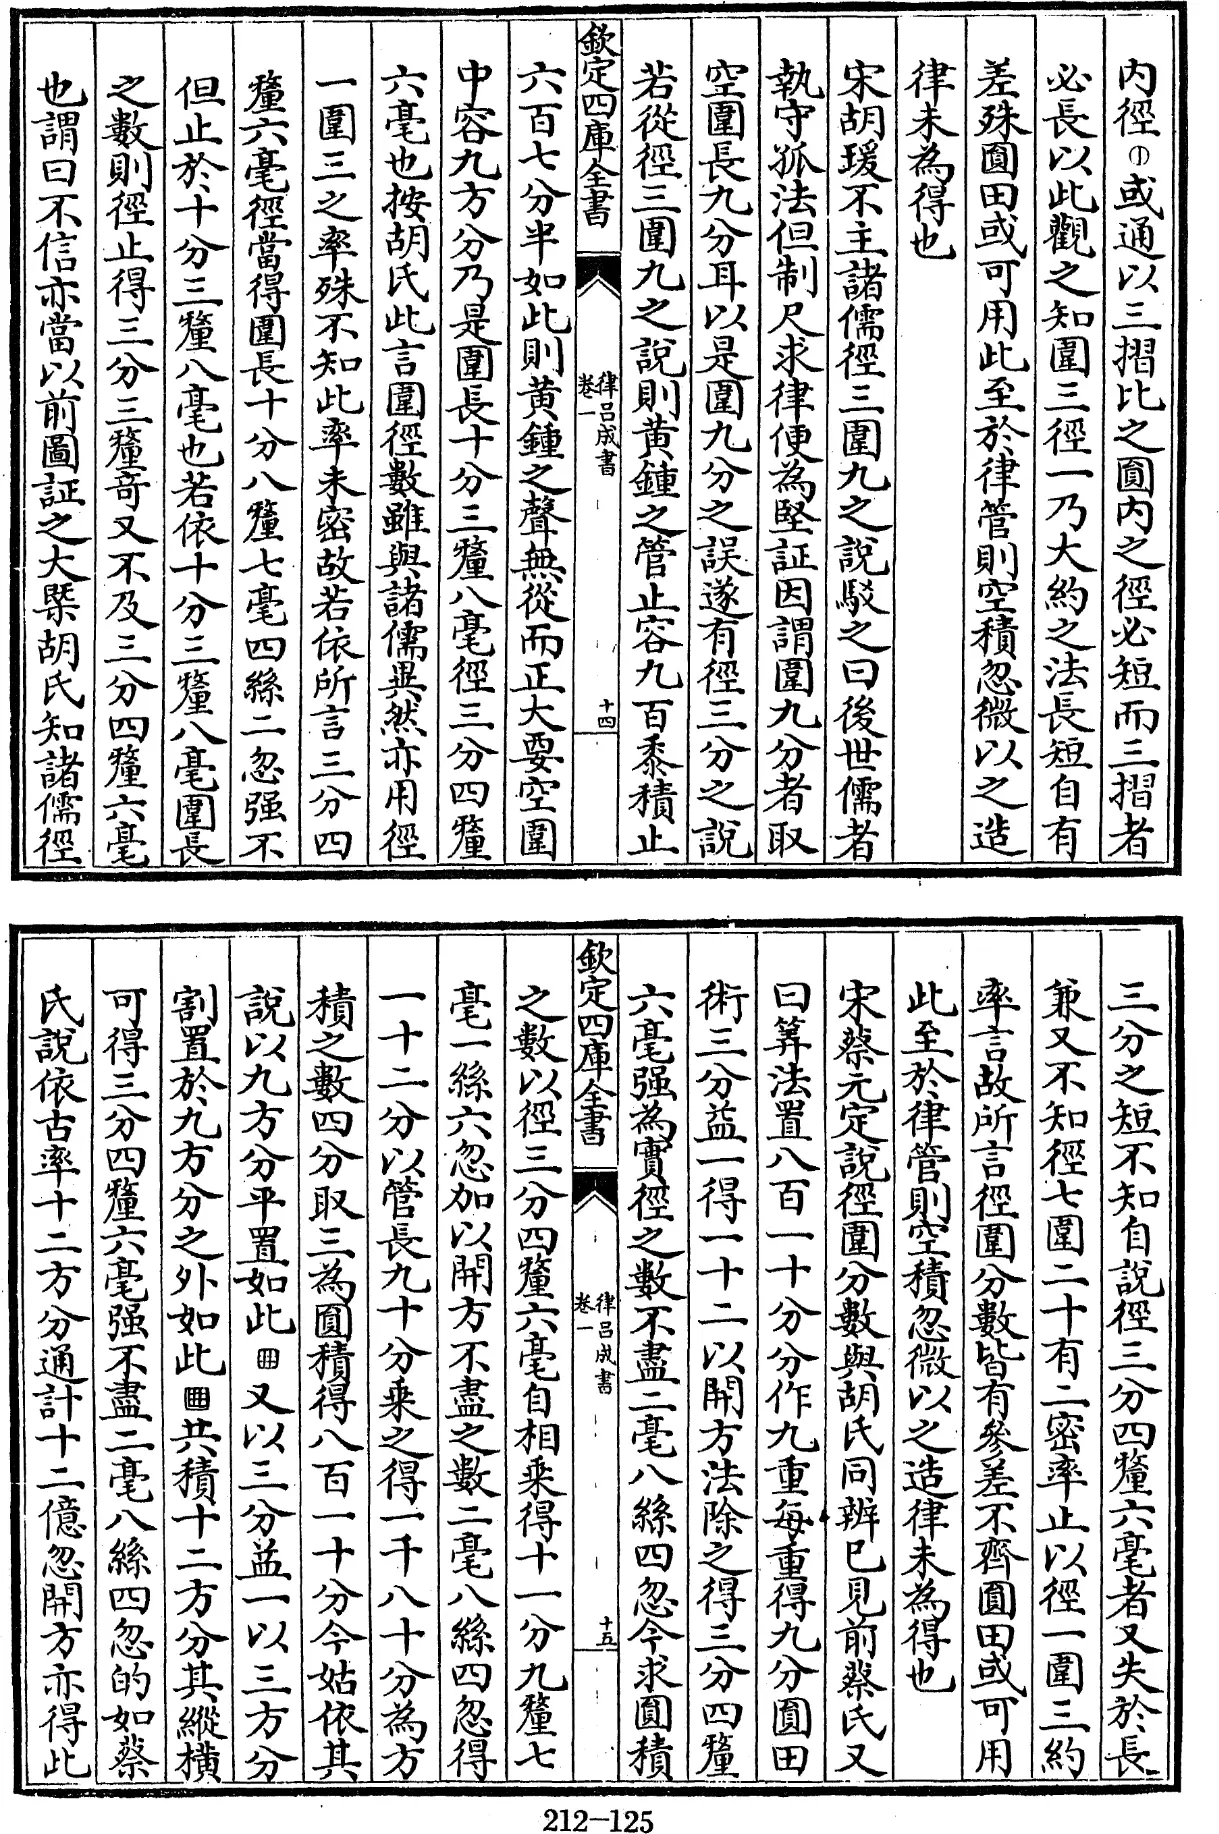 內徑①或通以三摺比之圎内之徑必短而三摺者
必長以此觀之知圍三徑一乃大約之法長短自有
差殊圎田或可用此至於律管則空積忽微以之造
律未為得也
宋胡瑗不主諸儒徑三圍九之說駁之曰後世儒者
執守孤法但制尺求律便為堅証因謂圍九分者取
空圍長九分耳以是圍九分之誤遂有徑三分之說
若從徑三圍九之說則黄鍾之管止容九百黍積止
欽定四庫全書
律吕成書
卷一
十四
六百七分半如此則黄鍾之聲無從而正大要空圍
中容九方分乃是圍長十分三釐八毫徑三分四釐
六毫也按胡氏此言圍徑數雖與諸儒異然亦用徑
一圍三之率殊不知此率未密故若依所言三分四
釐六毫徑當得圍長十分八釐七毫四絲二忽强不
但止於十分三釐八毫也若依十分三釐八毫圍長
之數則徑止得三分三釐竒又不及三分四釐六毫
也謂曰不信亦當以前圖証之大槩胡氏知諸儒徑
三分之短不知自說徑三分四釐六毫者又失於長
兼又不知徑七圍二十有二密率止以徑一圍三約
率言故所言徑圍分數皆有參差不齊圎田或可用
此至於律管則空積忽微以之造律未為得也
宋蔡元定說徑圍分數與胡氏同辨已見前蔡氏又
曰筭法置八百一十分分作九重每重得九分圎田
術三分益一得一十二以開方法除之得三分四釐
六毫强為實徑之數不盡二毫八絲四忽今求圎積
欽定四庫全書
律吕成書
卷一
十五
之數以徑三分四釐六毫自相乘得十一分九釐七
毫一絲六忽加以開方不盡之數二毫八絲四忽得
一十二分以管長九十分乘之得一千八十分為方
積之數四分取三為圎積得八百一十分今姑依其
說以九方分平置如此田又以三分益一以三方分
割置於九方分之外如此共積十二方分其縱橫
可得三分四釐六毫强不盡二毫八絲四忽的如蔡
氏說依古率十二方分通計十二億忽開方亦得此
212-125